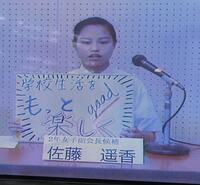 学校生活を
もっと good
楽しく
2年女子副会長候補
佐藤 遥香